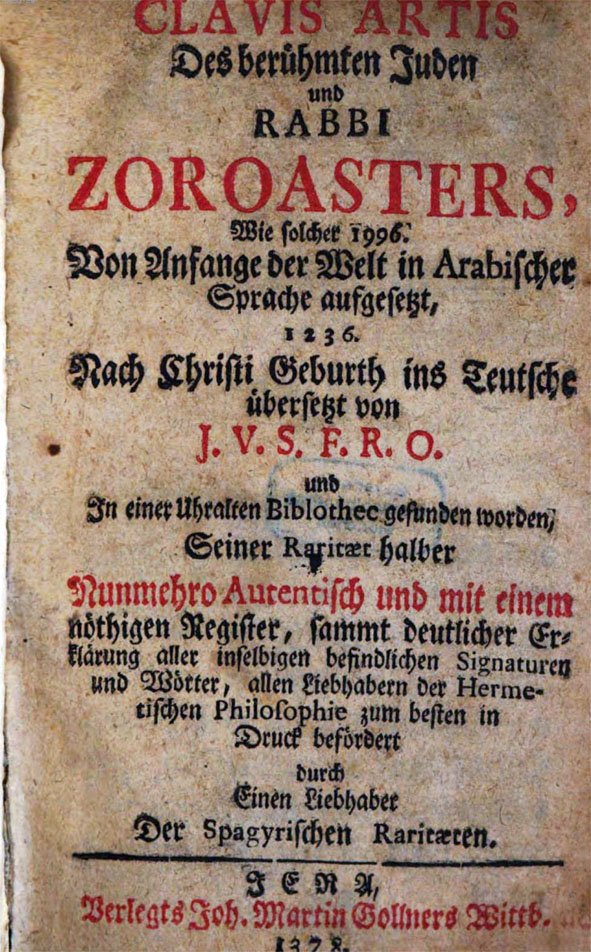 CLAVIS ARTIS
Des berühmten Juden
und
RABBI
ZOROASTERS,
Wie solcher 1996.
Von Anfange der Welt in Arabischer
Sprache aufgesetzt,
1236.
Nach Christi Geburth ins Teutsche
übersetzt von
J. V. S. F. R. O.
und
In einer Uhralten Biblothec gefunden worden,
Seiner Raritæt halber
Nunmehro Autentisch und mit einem
nöthigen Register, sammt deutlicher Er-
klärung aller inselbigen befindlichen Signaturen
und Wörter, allen Liebhabern der Herme-
tischen Philosophie zum besten in
Druck befördert
durch
Einen Liebhaber
Der Spagyrischen Raritæten.
JENA,
Verlegts Joh. Martin Gollners Wittb.